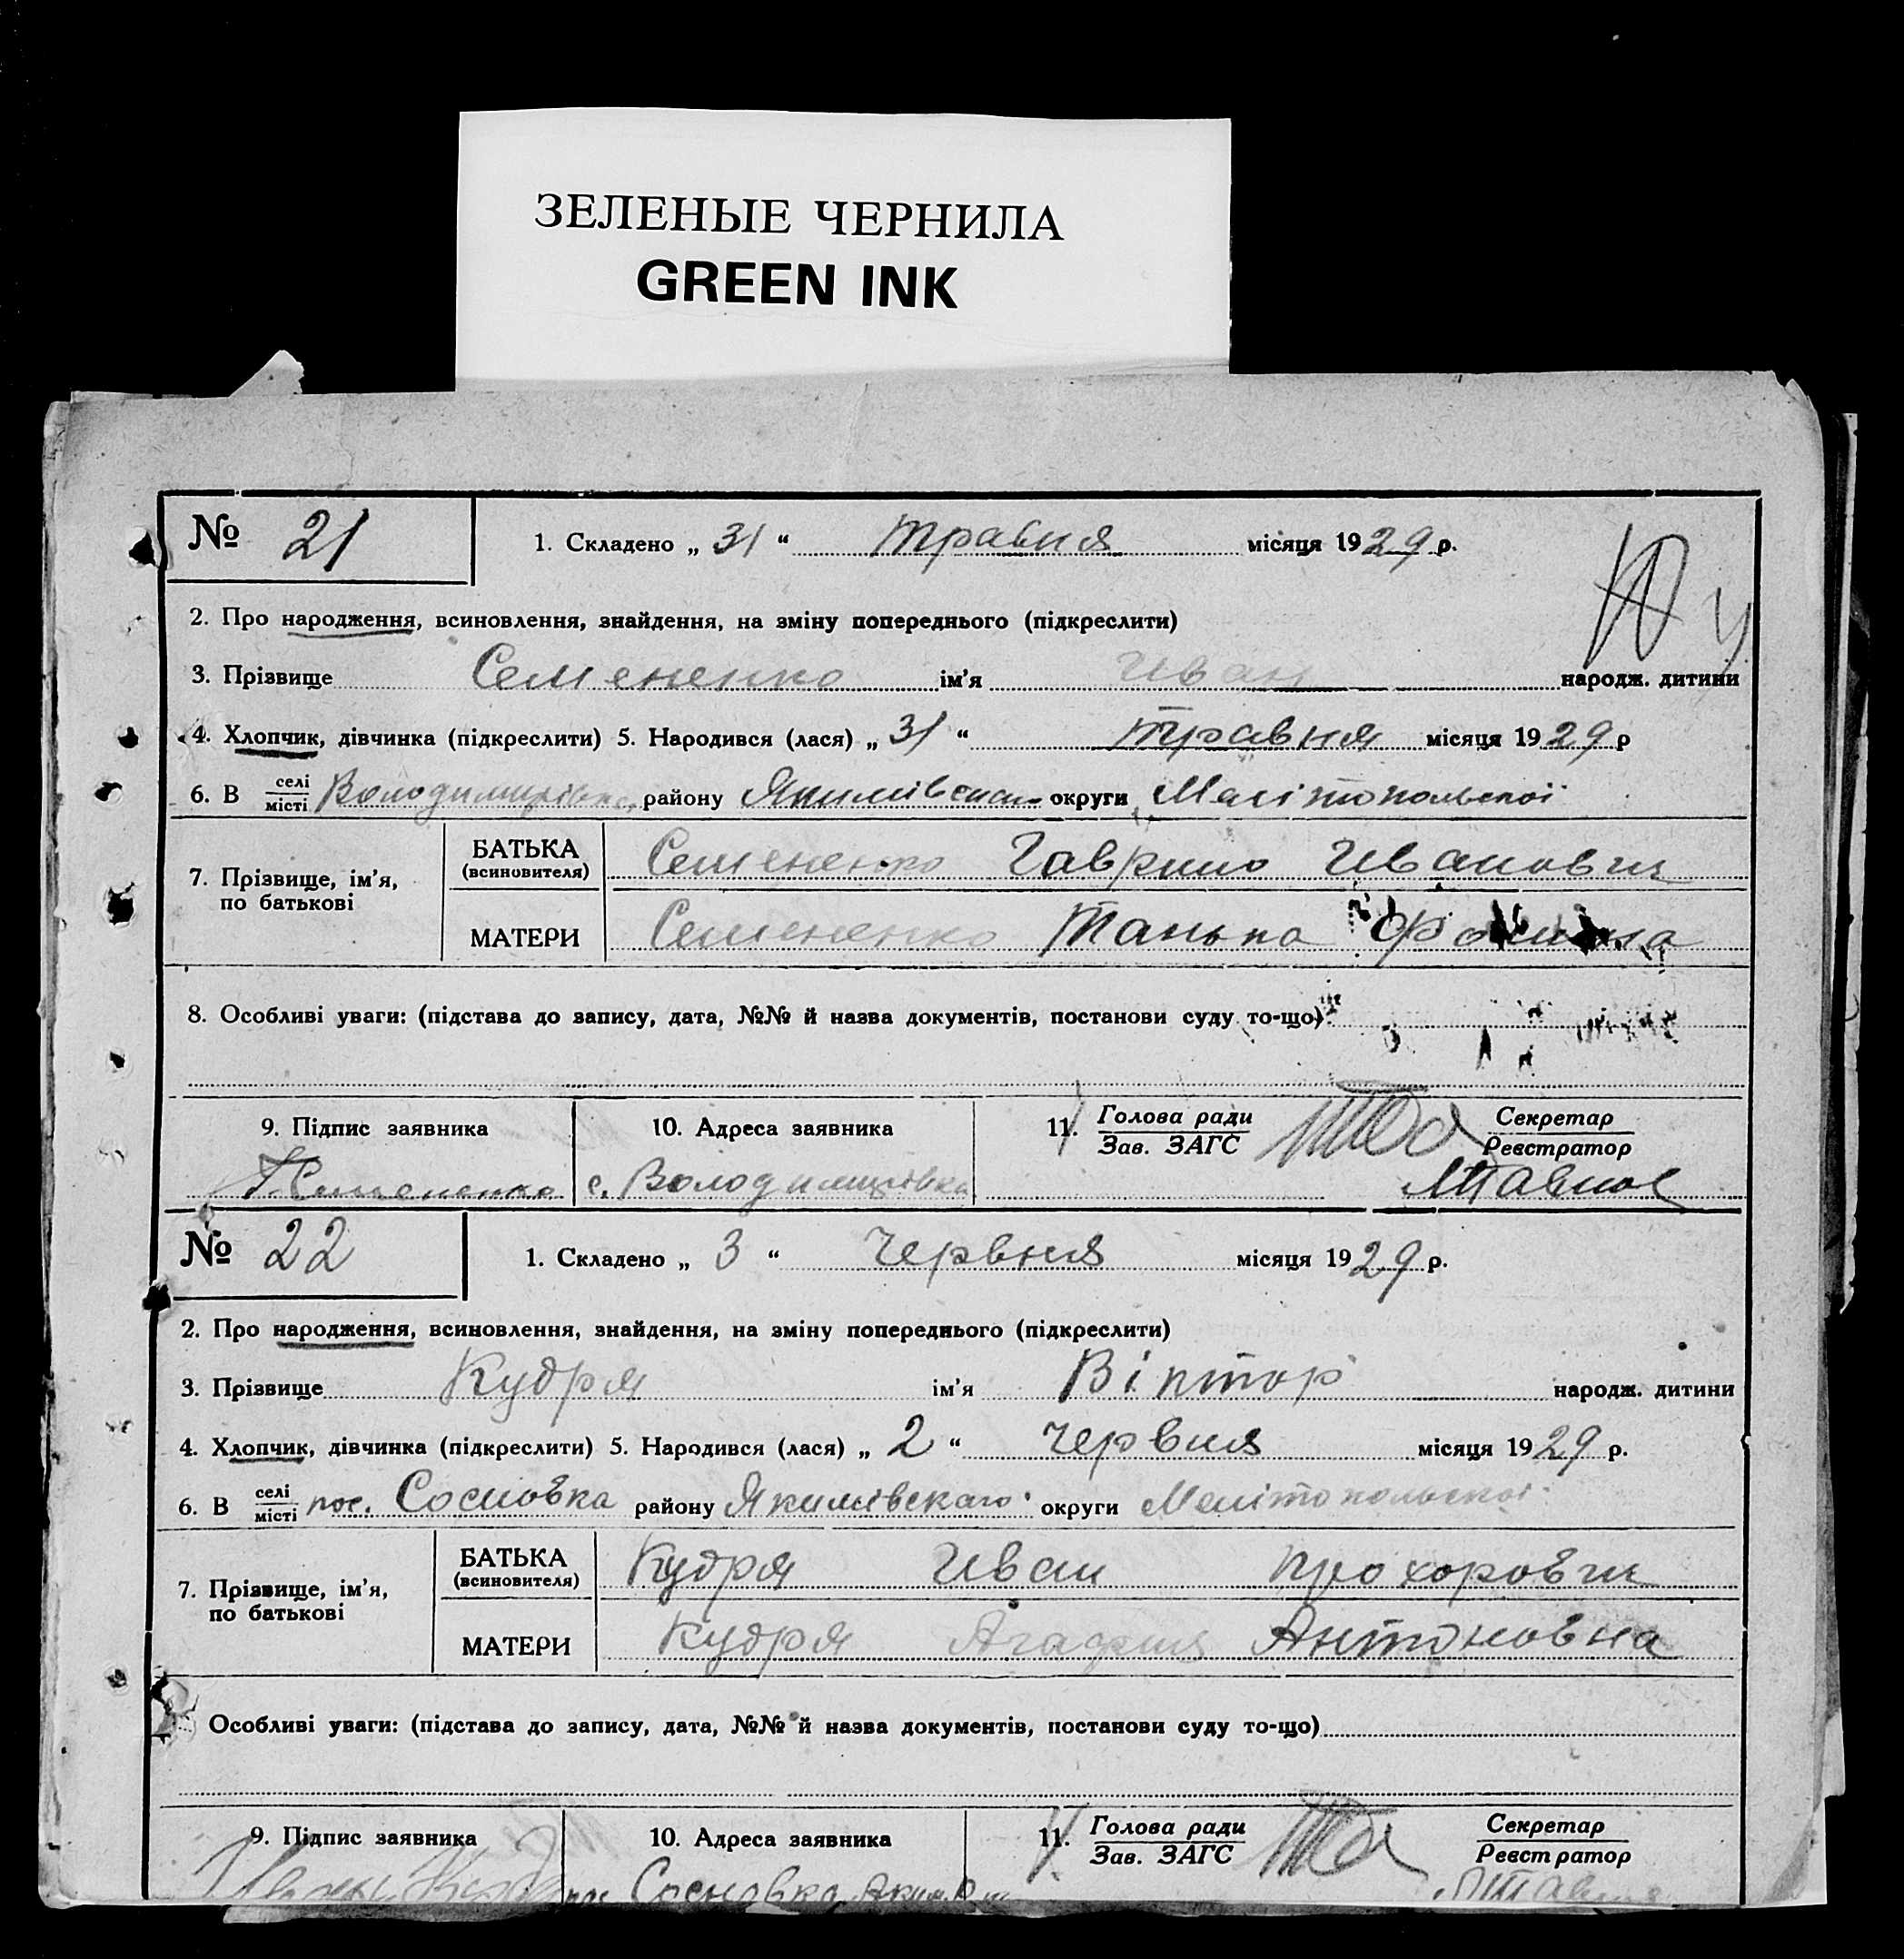 ЗЕЛЕНЫЕ ЧЕРНИЛА
GREEN INK
№ 21 1. Складено „ 31 “ травня місяця 1929 р.
2. Про народження, всиновлення, знайдення, на зміну попереднього (підкреслити)
3. Прізвище Семененко ім'я Иван народж. дитини
4. Хлопчик, дівчинка (підкреслити) 5. Народився (лася) „ 31 “ травня місяця 1929 р
6. В селі/місті Володимирівка району округи Мелітопольської
7. Прізвище, ім'я, по батькові
БАТЬКА (всиновителя) Семененко Гаврило Иванович
МАТЕРИ Семененко
8. Особливі уваги: (підстава до запису, дата, №№ й назва документів, постанови суду то-що)
9. Підпис заявника 10. Адреса заявника 11. Голова ради/Зав. ЗАГС Секретар/Реєстратор
Семененко с. Володимирівка
№ 22 1. Складено „ 3 “ Червня місяця 1929 р.
2. Про народження, всиновлення, знайдення, на зміну попереднього (підкреслити)
3. Прізвище Кудря ім'я Віктор народж. дитини
4. Хлопчик, дівчинка (підкреслити) 5. Народився (лася) „ 2 “ червня місяця 1929 р.
6. В селі/місті пос. Сосновка району Якимівскаго округи Мелітопольської
7. Прізвище, ім'я, по батькові
БАТЬКА (всиновителя) Кудря Иван Прохорович
МАТЕРИ Кудря Агафия Антоновна
Особливі уваги: (підстава до запису, дата, №№ й назва документів, постанови суду то-що)
9. Підпис заявника 10. Адреса заявника 11. Голова ради/Зав. ЗАГС Секретар/Реєстратор
пос. Сосновка